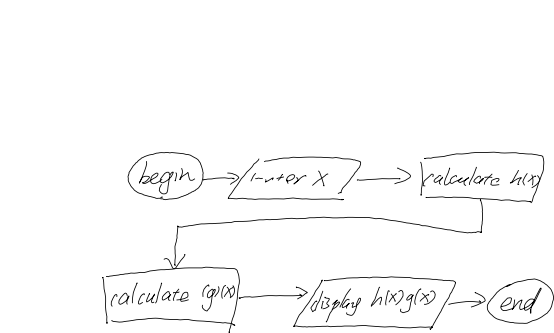 begin
enter X
calculate h(x)
calculate (g)(x)
display h(x)g(x)
end